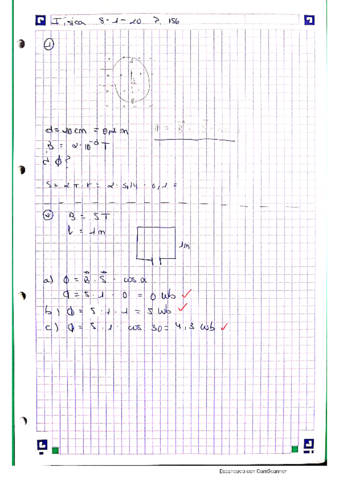 Física 8-1-20 P. 186
①
d = 20 cm = 0,2 m
B = 2·10⁻³ T
d ϕ?
S = 2π·r = 2·3,14·0,1 =
② B = 5T
l = 1m
1m
a) ϕ = B·S· cos α
ϕ = 5·1·0 = 0 Wb ✓
b) ϕ = 5·1·1 = 5 Wb ✓
c) ϕ = 5·1· cos 30 = 4,3 Wb ✓
Escaneado con CamScanner